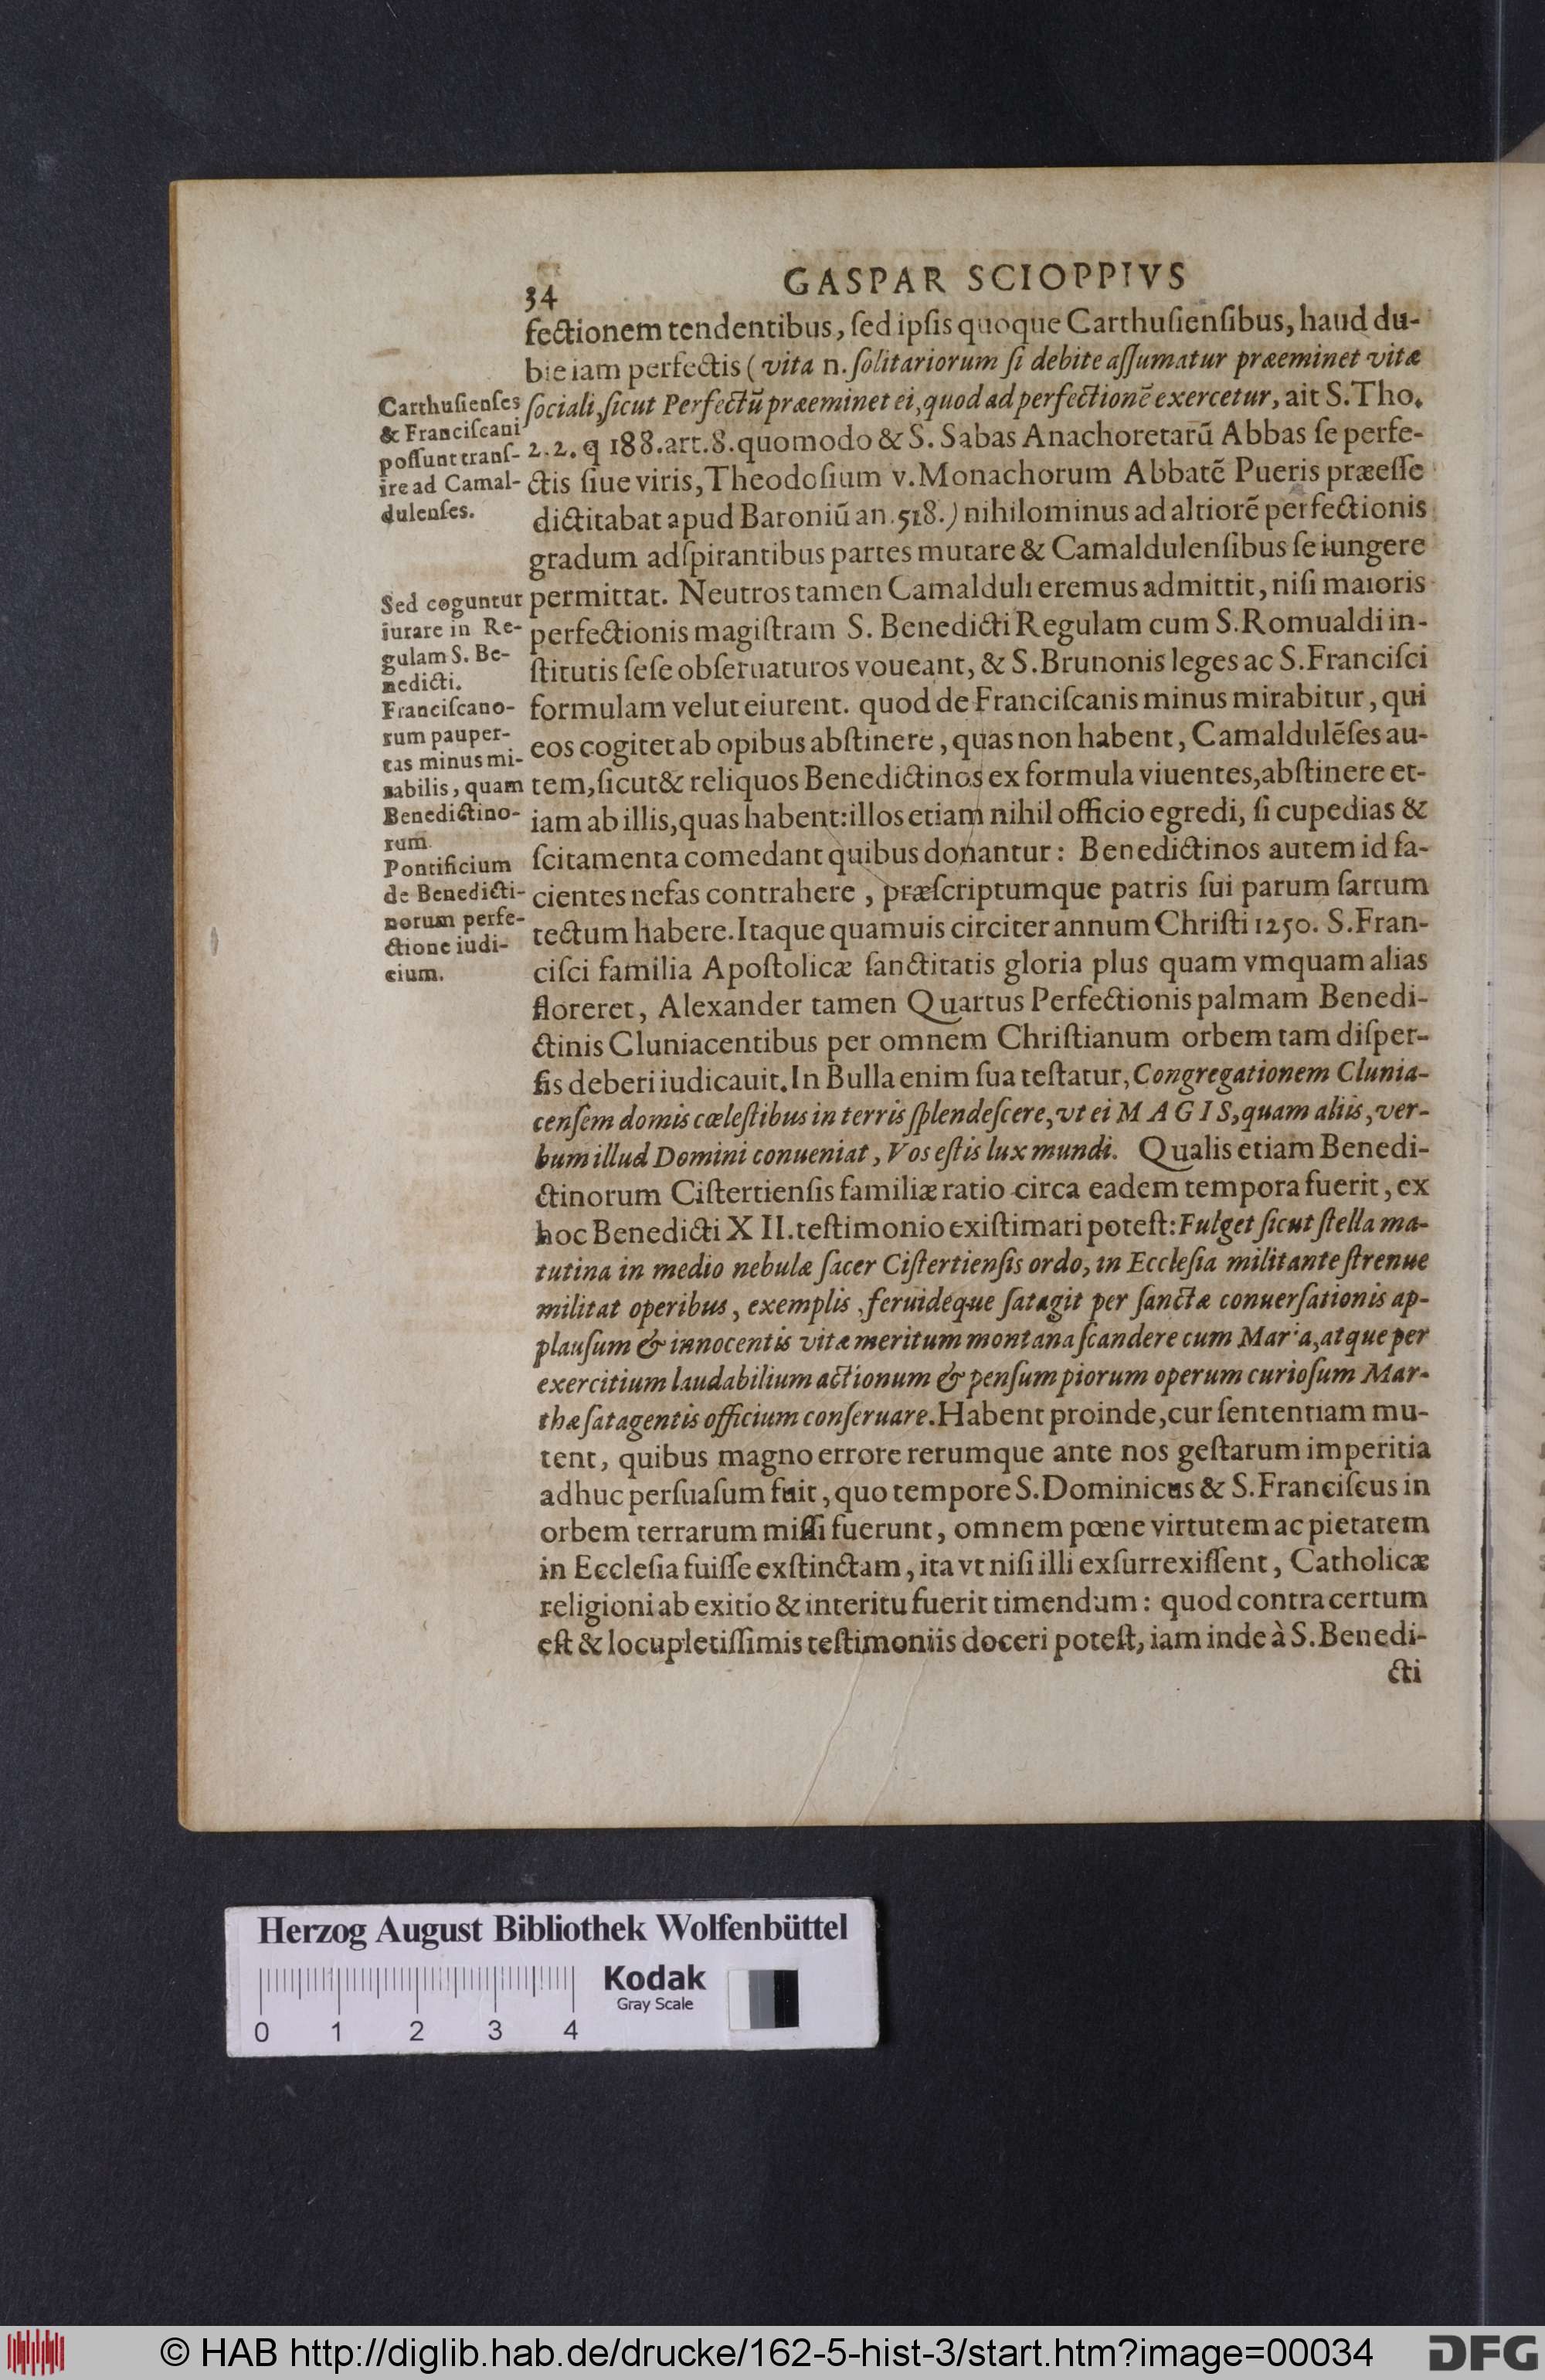 34
GASPAR SCIOPPIVS
fectionem tendentibus, ſed ipſis quoque Carthuſienſibus, haud du-
bie iam perfectis ( vita n. ſolitariorum ſi debite aſſumatur præeminet vitæ
ſociali, ſicut Perfectũ præeminet ei, quod ad perfectionẽ exercetur, ait S. Tho.
2. 2. q 188. art. 8. quomodo & S. Sabas Anachoretarũ Abbas ſe perfe-
ctis ſiue viris, Theodoſium v. Monachorum Abbatẽ Pueris præeſſe
dictitabat apud Baroniũ an. 518.) nihilominus ad altiorẽ perfectionis
gradum adſpirantibus partes mutare & Camaldulenſibus ſe iungere
permittat. Neutros tamen Camalduli eremus admittit, niſi maioris
perfectionis magiſtram S. Benedicti Regulam cum S. Romualdi in-
ſtitutis ſeſe obſeruaturos voueant, & S. Brunonis leges ac S. Franciſci
formulam velut eiurent. quod de Franciſcanis minus mirabitur, qui
eos cogitet ab opibus abſtinere, quas non habent, Camaldulẽſes au-
tem, ſicut & reliquos Benedictinos ex formula viuentes, abſtinere et-
iam ab illis, quas habent: illos etiam nihil officio egredi, ſi cupedias &
ſcitamenta comedant quibus donantur: Benedictinos autem id fa-
cientes nefas contrahere , præſcriptumque patris ſui parum ſartum
tectum habere. Itaque quamuis circiter annum Chriſti 1250. S. Fran-
ciſci familia Apoſtolicæ ſanctitatis gloria plus quam vmquam alias
floreret, Alexander tamen Quartus Perfectionis palmam Benedi-
ctinis Cluniacentibus per omnem Chriſtianum orbem tam diſper-
ſis deberi iudicauit. In Bulla enim ſua teſtatur, Congregationem Clunia-
cenſem domis cœleſtibus in terris ſplendeſcere, vt ei MAGIS, quam aliis, ver-
bum illud Domini conueniat, Vos eſtis lux mundi. Qualis etiam Benedi-
ctinorum Ciſtertienſis familiæ ratio circa eadem tempora fuerit, ex
hoc Benedicti XII. teſtimonio exiſtimari poteſt: Fulget ſicut ſtella ma-
tutina in medio nebulæ ſacer Ciſtertienſis ordo, in Eccleſia militante ſtrenue
militat operibus, exemplis, feruidéque ſatagit per ſanctæ conuerſationis ap-
plauſum & innocentis vitæ meritum montana ſcandere cum Maria, atque per
exercitium laudabilium actionum & penſum piorum operum curioſum Mar-
thæ ſatagentis officium conſeruare. Habent proinde, cur ſententiam mu-
tent, quibus magno errore rerumque ante nos geſtarum imperitia
adhuc perſuaſum fuit, quo tempore S. Dominicus & S. Franciſcus in
orbem terrarum miſſi fuerunt, omnem pœne virtutem ac pietatem
in Eccleſia fuiſſe exſtinctam, ita vt niſi illi exſurrexiſſent, Catholicæ
religioni ab exitio & interitu fuerit timendum: quod contra certum
eſt & locupletiſſimis teſtimoniis doceri poteſt, iam inde à S. Benedi-
cti
Carthuſienſes
& Franciſcani
poſſunt tranſ-
ire ad Camal-
dulenſes.
Sed coguntur
iurare in Re-
gulam S. Be-
nedicti.
Franciſcano-
rum pauper-
tas minus mi-
rabilis, quam
Benedictino-
rum.
Pontificium
de Benedicti-
norum perfe-
ctione iudi-
cium.
Herzog August Bibliothek Wolfenbüttel
Kodak
Gray Scale
0 1 2 3 4
© HAB http://diglib.hab.de/drucke/162-5-hist-3/start.htm?image=00034
DFG